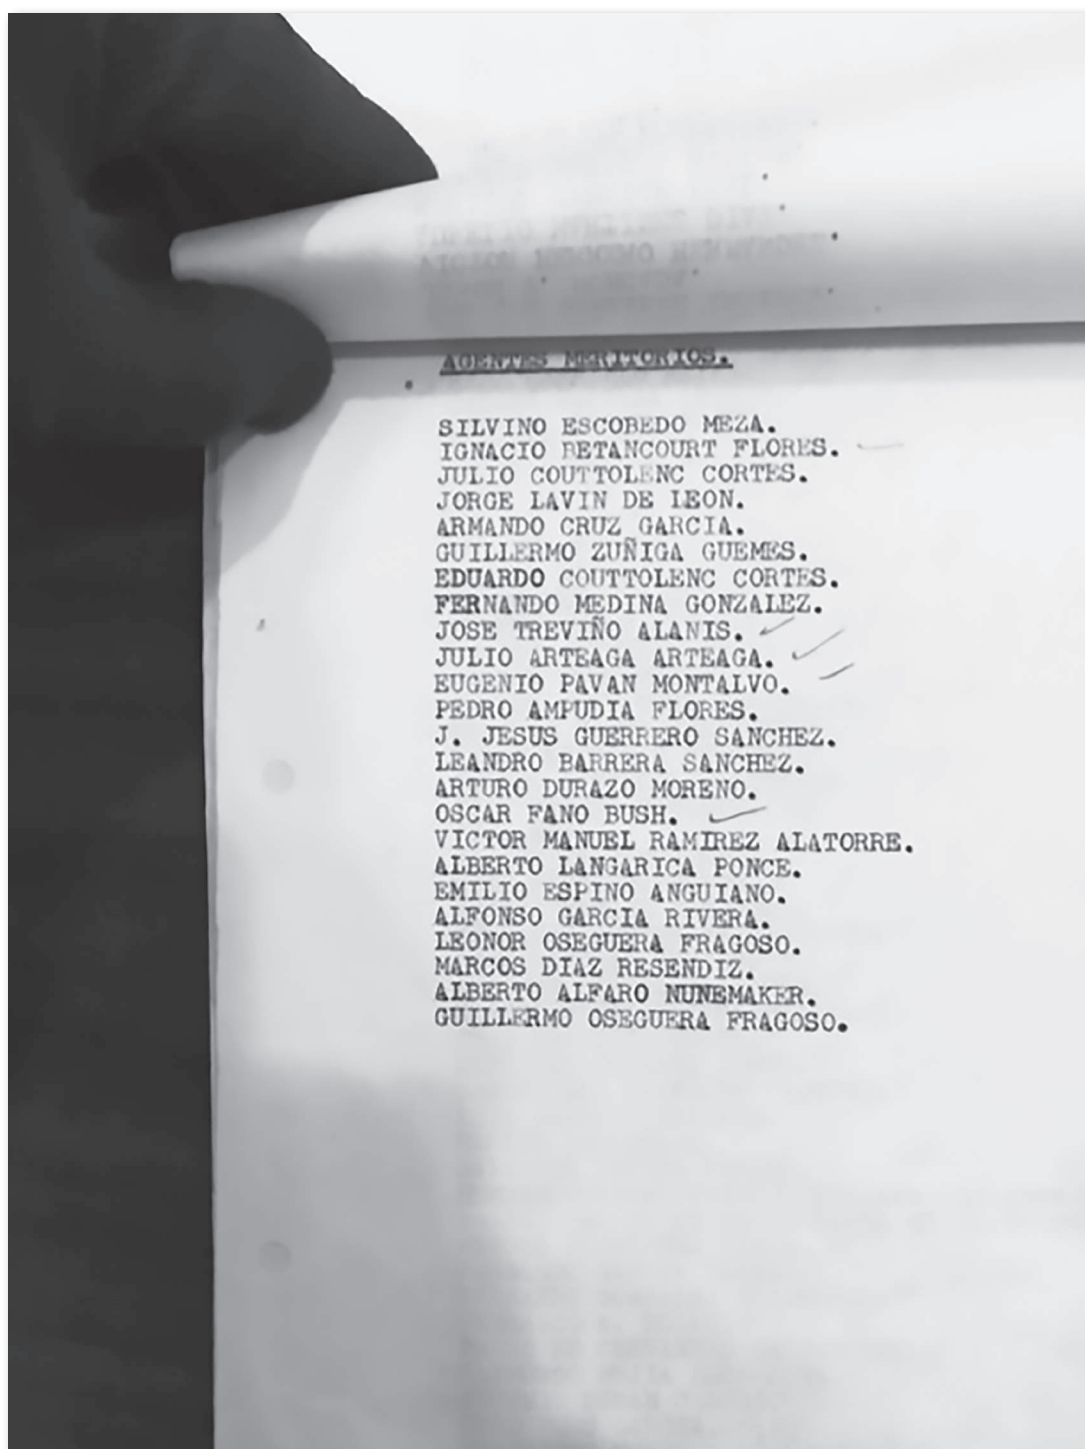 AGENTES MERITORIOS.
SILVINO ESCOBEDO MEZA.
IGNACIO BETANCOURT FLORES.
JULIO COUTTOLENC CORTES.
JORGE LAVIN DE LEON.
ARMANDO CRUZ GARCIA.
GUILLERMO ZUÑIGA GUEMES.
EDUARDO COUTTOLENC CORTES.
FERNANDO MEDINA GONZALEZ.
JOSE TREVIÑO ALANIS.
JULIO ARTEAGA ARTEAGA.
EUGENIO PAVAN MONTALVO.
PEDRO AMPUDIA FLORES.
J. JESUS GUERRERO SANCHEZ.
LEANDRO BARRERA SANCHEZ.
ARTURO DURAZO MORENO.
OSCAR FANO BUSH.
VICTOR MANUEL RAMIREZ ALATORRE.
ALBERTO LANGARICA PONCE.
EMILIO ESPINO ANGUIANO.
ALFONSO GARCIA RIVERA.
LEONOR OSEGUERA FRAGOSO.
MARCOS DIAZ RESENDIZ.
ALBERTO ALFARO NUNEMAKER.
GUILLERMO OSEGUERA FRAGOSO.